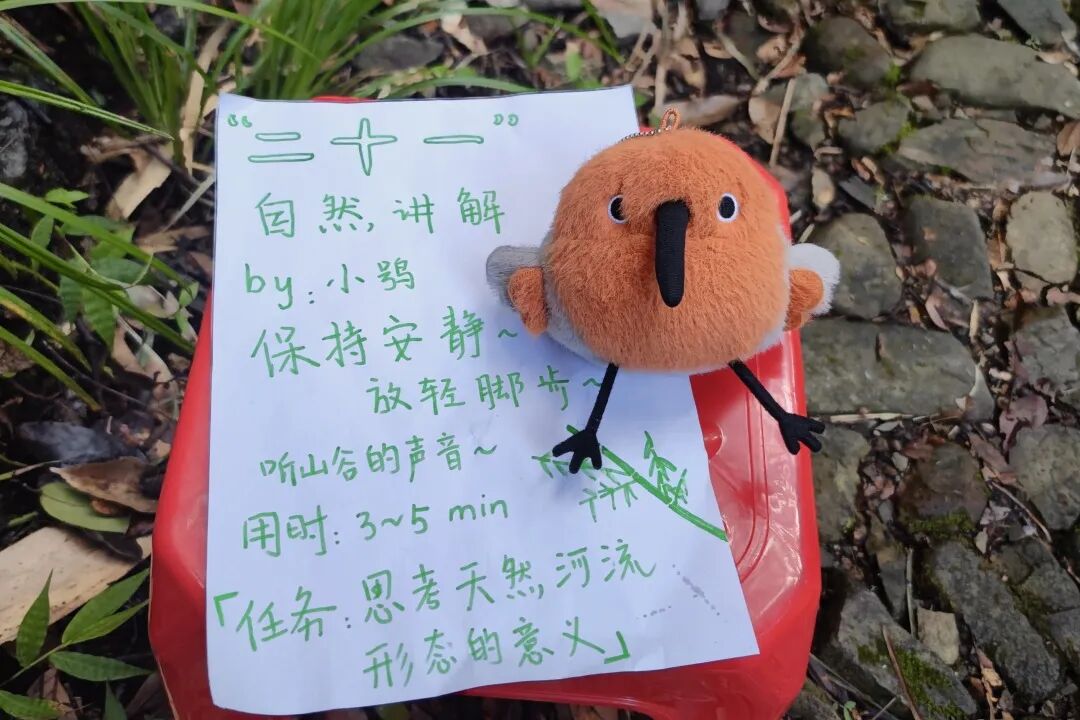 “二十一”
自然讲解
by：小鹗
保持安静~
放轻脚步~
听山谷的声音~
用时：3~5 min
「任务：思考天然河流
形态的意义」